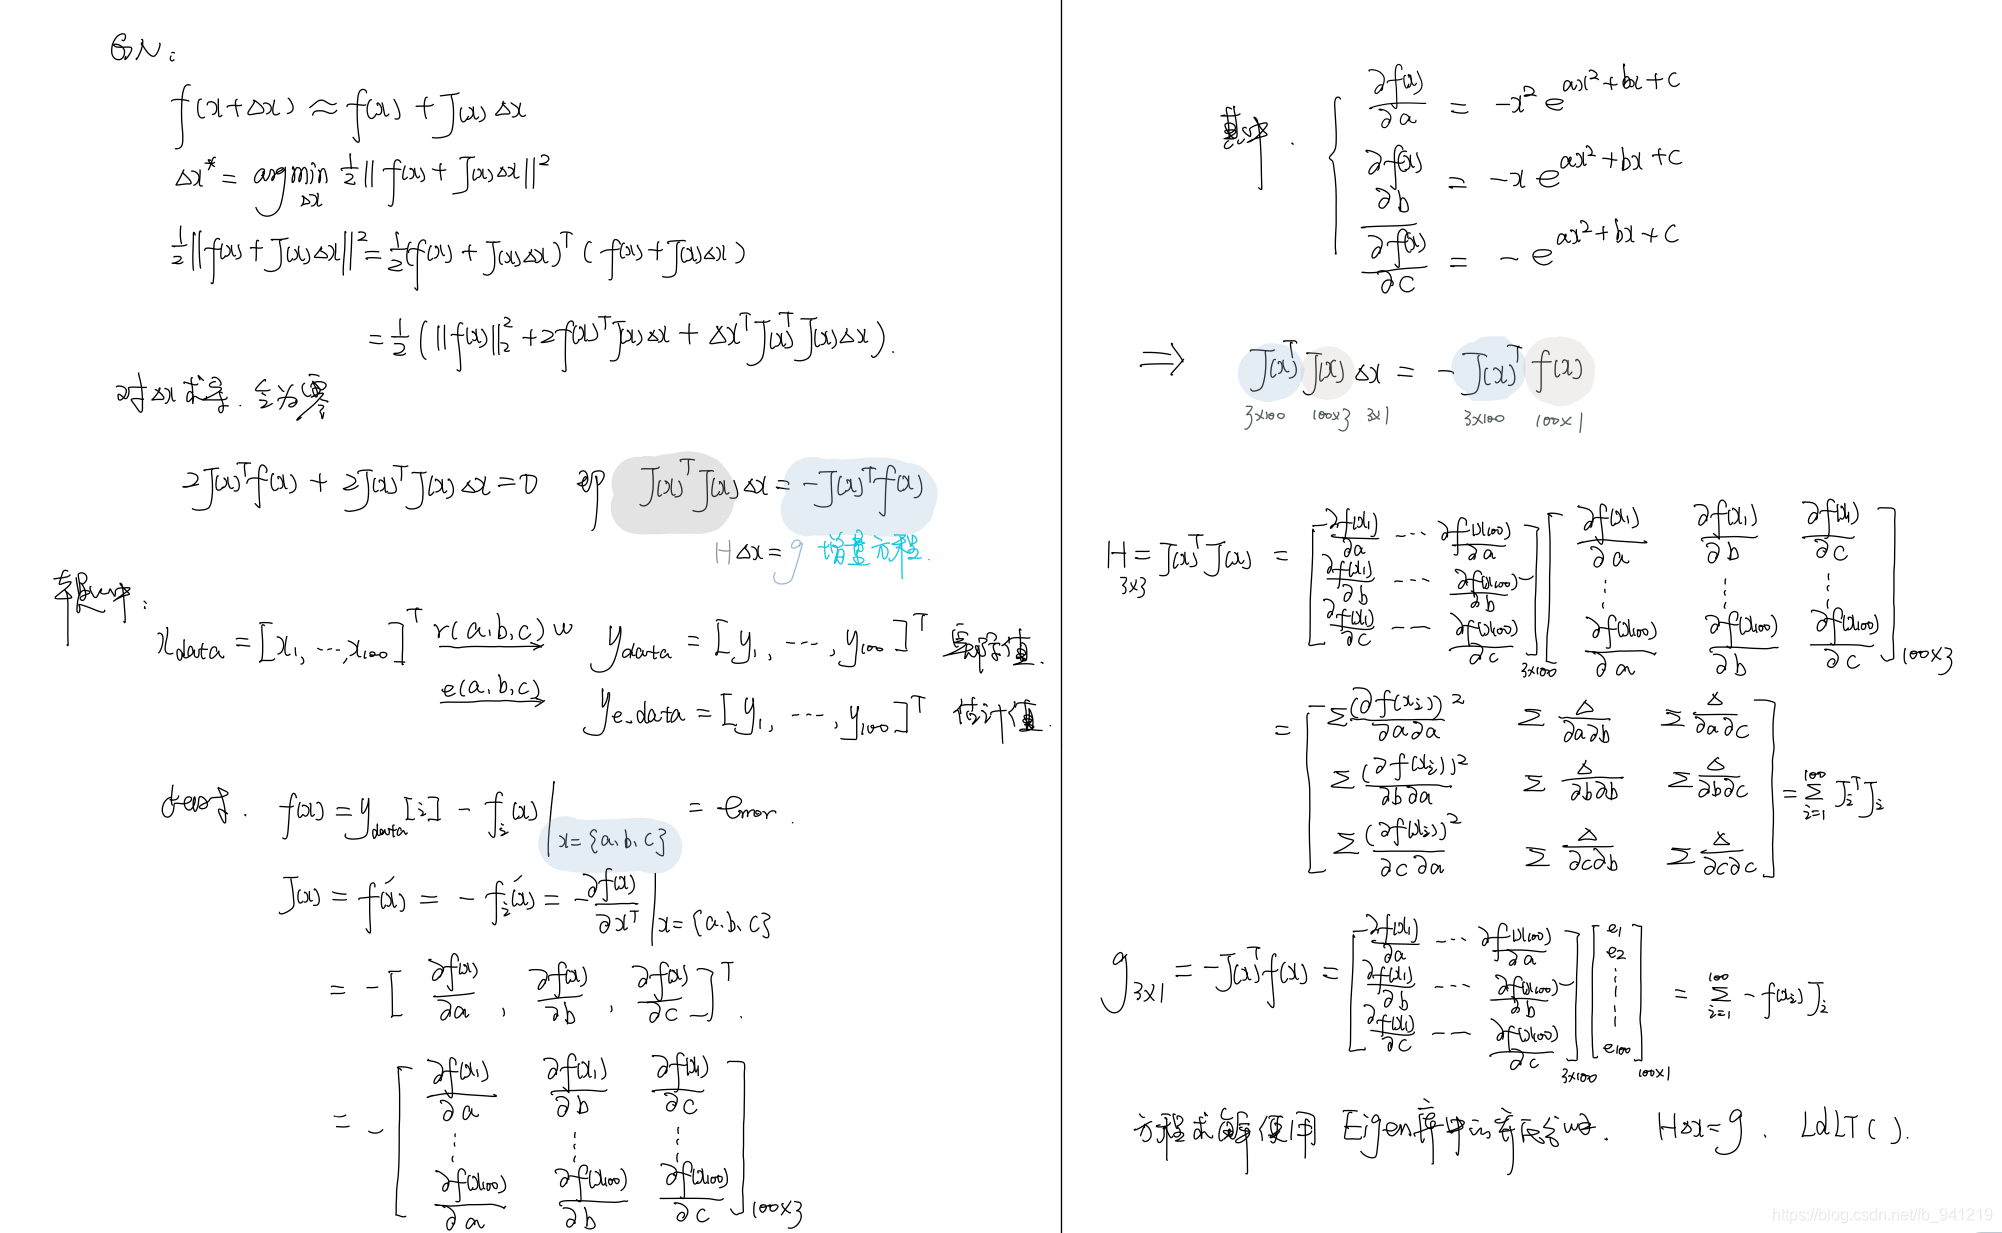 GN:
f(x+Δx) ≈ f(x) + J(x) Δx
Δx* = argmin_Δx 1/2 ‖ f(x) + J(x) Δx ‖²
1/2 ‖ f(x) + J(x) Δx ‖² = 1/2 (f(x) + J(x) Δx)ᵀ ( f(x) + J(x) Δx )
= 1/2 ( ‖f(x)‖₂² + 2f(x)ᵀ J(x) Δx + Δxᵀ J(x)ᵀ J(x) Δx ).
对Δx求导. 令为零
2J(x)ᵀ f(x) + 2J(x)ᵀ J(x) Δx = 0 即 J(x)ᵀ J(x) Δx = -J(x)ᵀ f(x)
HΔx = g 增量方程.
x_data = [x₁, ⋯, x₁₀₀]ᵀ r(a,b,c) w y_data = [y₁, ⋯, y₁₀₀]ᵀ 实际值.
e(a,b,c) ye_data = [y₁, ⋯, y₁₀₀]ᵀ 估计值.
f(x) = y_data[i] - f_i(x) | x={a,b,c} = error.
J(x) = f(x)′ = - f_i(x)′ = - ∂f(x)/∂xᵀ | x={a,b,c}
= - [ ∂f(x)/∂a , ∂f(x)/∂b , ∂f(x)/∂c ]ᵀ.
= - [ ∂f(x₁)/∂a ∂f(x₁)/∂b ∂f(x₁)/∂c
⋮ ⋮ ⋮
∂f(x₁₀₀)/∂a ∂f(x₁₀₀)/∂b ∂f(x₁₀₀)/∂c ] 100×3
其中. { ∂f(x)/∂a = -x² e^(ax²+bx+c)
∂f(x)/∂b = -x e^(ax²+bx+c)
∂f(x)/∂c = - e^(ax²+bx+c)
⇒ J(x)ᵀ J(x) Δx = - J(x)ᵀ f(x)
3×100 100×3 3×1 3×100 100×1
H 3×3 = J(x)ᵀ J(x) = [ ∂f(x₁)/∂a ⋯ ∂f(x₁₀₀)/∂a
∂f(x₁)/∂b ⋯ ∂f(x₁₀₀)/∂b
∂f(x₁)/∂c ⋯ ∂f(x₁₀₀)/∂c ] 3×100
[ ∂f(x₁)/∂a ∂f(x₁)/∂b ∂f(x₁)/∂c
⋮ ⋮ ⋮
∂f(x₁₀₀)/∂a ∂f(x₁₀₀)/∂b ∂f(x₁₀₀)/∂c ] 100×3
= [ Σ(∂f(x_i))²/∂a∂a Σ Δ/∂a∂b Σ Δ/∂a∂c
Σ(∂f(x_i))²/∂b∂a Σ Δ/∂b∂b Σ Δ/∂b∂c
Σ(∂f(x_i))²/∂c∂a Σ Δ/∂c∂b Σ Δ/∂c∂c ] = Σ_{i=1}^{100} J_iᵀ J_i
g 3×1 = -J(x)ᵀ f(x) = [ ∂f(x₁)/∂a ⋯ ∂f(x₁₀₀)/∂a
∂f(x₁)/∂b ⋯ ∂f(x₁₀₀)/∂b
∂f(x₁)/∂c ⋯ ∂f(x₁₀₀)/∂c ] 3×100
[ e₁ e₂ ⋮ e₁₀₀ ] 100×1 = Σ_{i=1}^{100} - f(x_i) J_i
方程求解使用 Eigen库中的 HΔx=g. LdLT( ).
https://blog.csdn.net/fb_941219